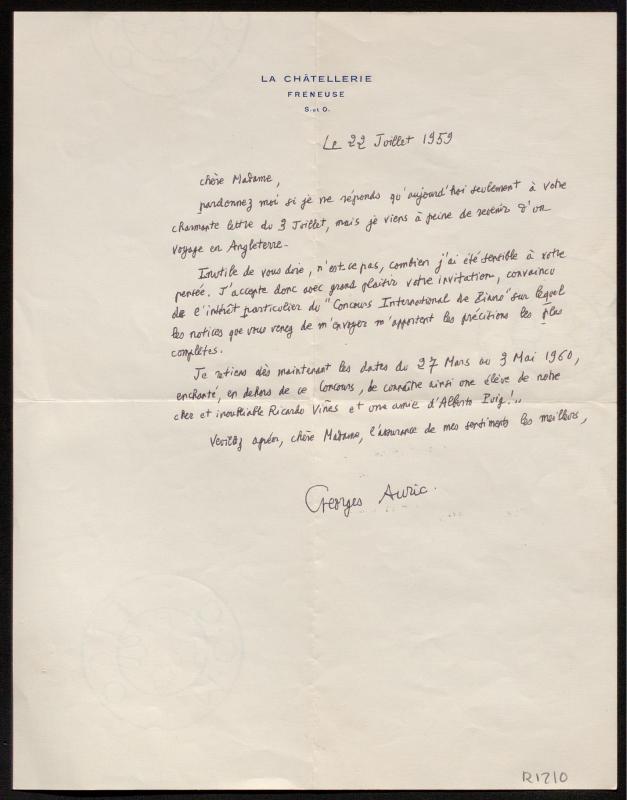 LA CHÂTELLERIE
FRENEUSE
S. et O.
Le 22 Juillet 1959
Chère Madame,
pardonnez moi si je ne réponds qu'aujourd'hui seulement à votre
charmante lettre du 3 Juillet, mais je viens à peine de revenir d'un
voyage en Angleterre.
Inutile de vous dire, n'est-ce pas, combien j'ai été sensible à votre
pensée. J'accepte donc avec grand plaisir votre invitation, convaincu
de l'intérêt particulier du "Concours International de Piano" sur lequel
les notices que vous venez de m'envoyer m'apportent les précisions les plus
complètes.
Je retiens dès maintenant les dates du 27 Mars au 3 Mai 1960,
enchanté, en dehors de ce Concours, de connaître ainsi une élève de notre
cher et inoubliable Ricardo Viñes et une amie d'Alberto Puig!..
Veuillez agréer, chère Madame, l'assurance de mes sentiments les meilleurs,
Georges Auric.
R1710